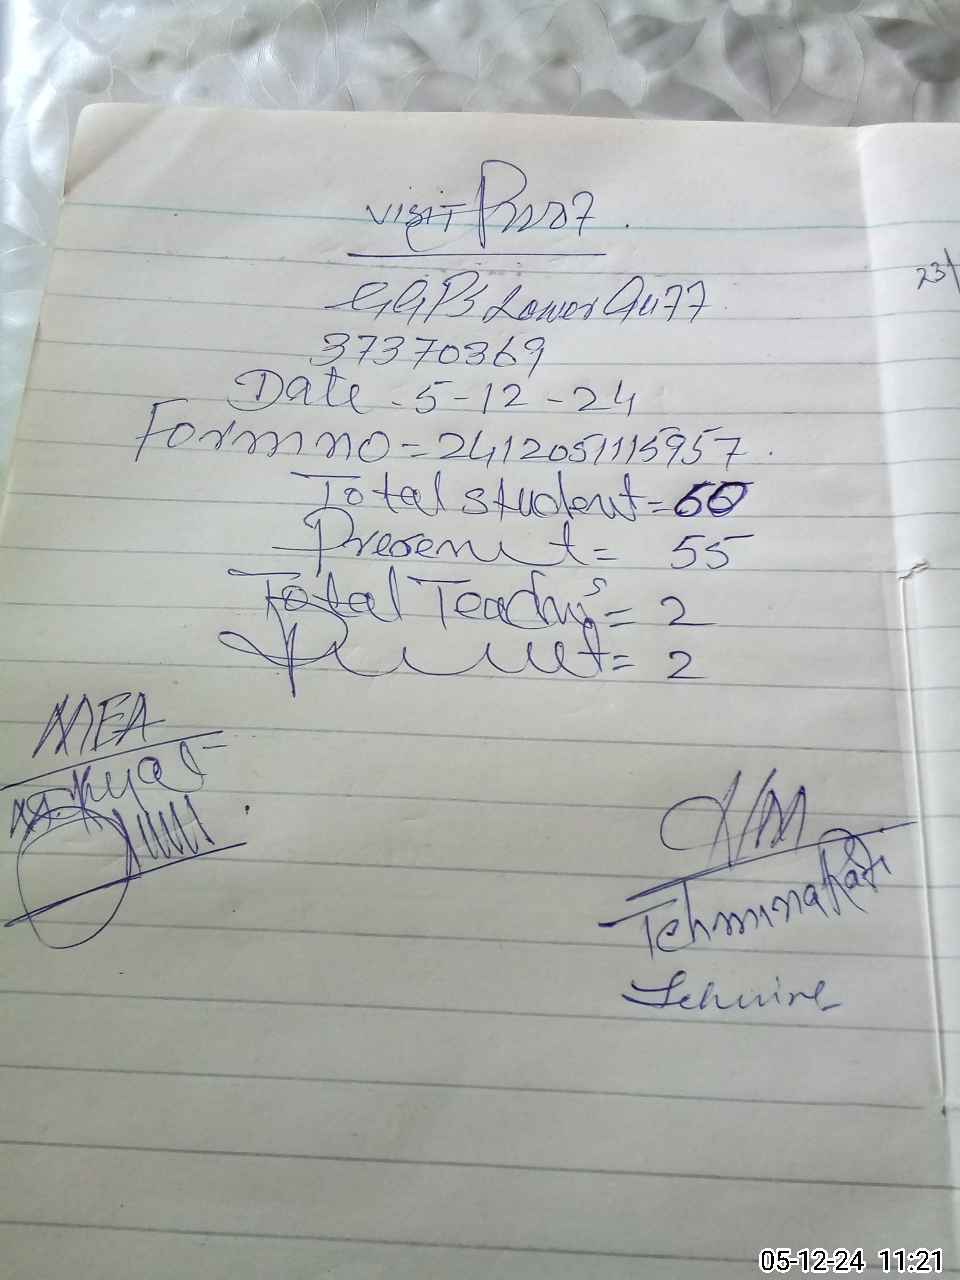 VISIT Proof.
GGPS Lower Gutt
37370369
Date -5-12-24
Form no = 2412051115957.
Total student = 60
Present = 55
Total Teachers = 2
Present = 2
23
MEA
H/M
Tehmina
05-12-24 11:21